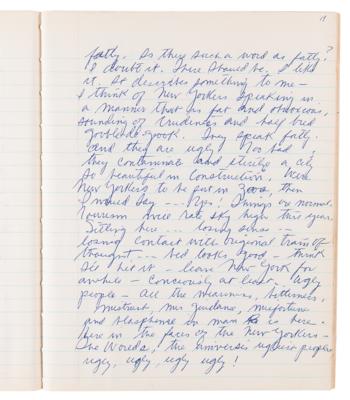 11
fatly. Is there such a word as fatly?
I doubt it. There should be. I like
it. It describes something to me -
I think of New Yorkers speaking in
a manner that is fat and obnoxious,
sounding of crudeness and half bred
gobbledegook. They speak fatly.
and they are ugly. Too bad,
they contaminate and sterilize a city
so beautiful in construction. Were
New Yorkers to be put in zoos, then
I would say --- Yep! Things are normal.
Tourism must rate sky high this year.
Sitting here... losing sense --
losing contact with original train of
thought --- bed looks good - think
I'll hit it - leave New York for
awhile - Conciously at least. Ugly
people - all the meanness, bitterness,
mistrust, misguidance, misfortune
and blasphemie in man is here.
here in the faces of the New Yorkers -
The Worlds, the Universes ugliest people
ugly, ugly, ugly ugly!